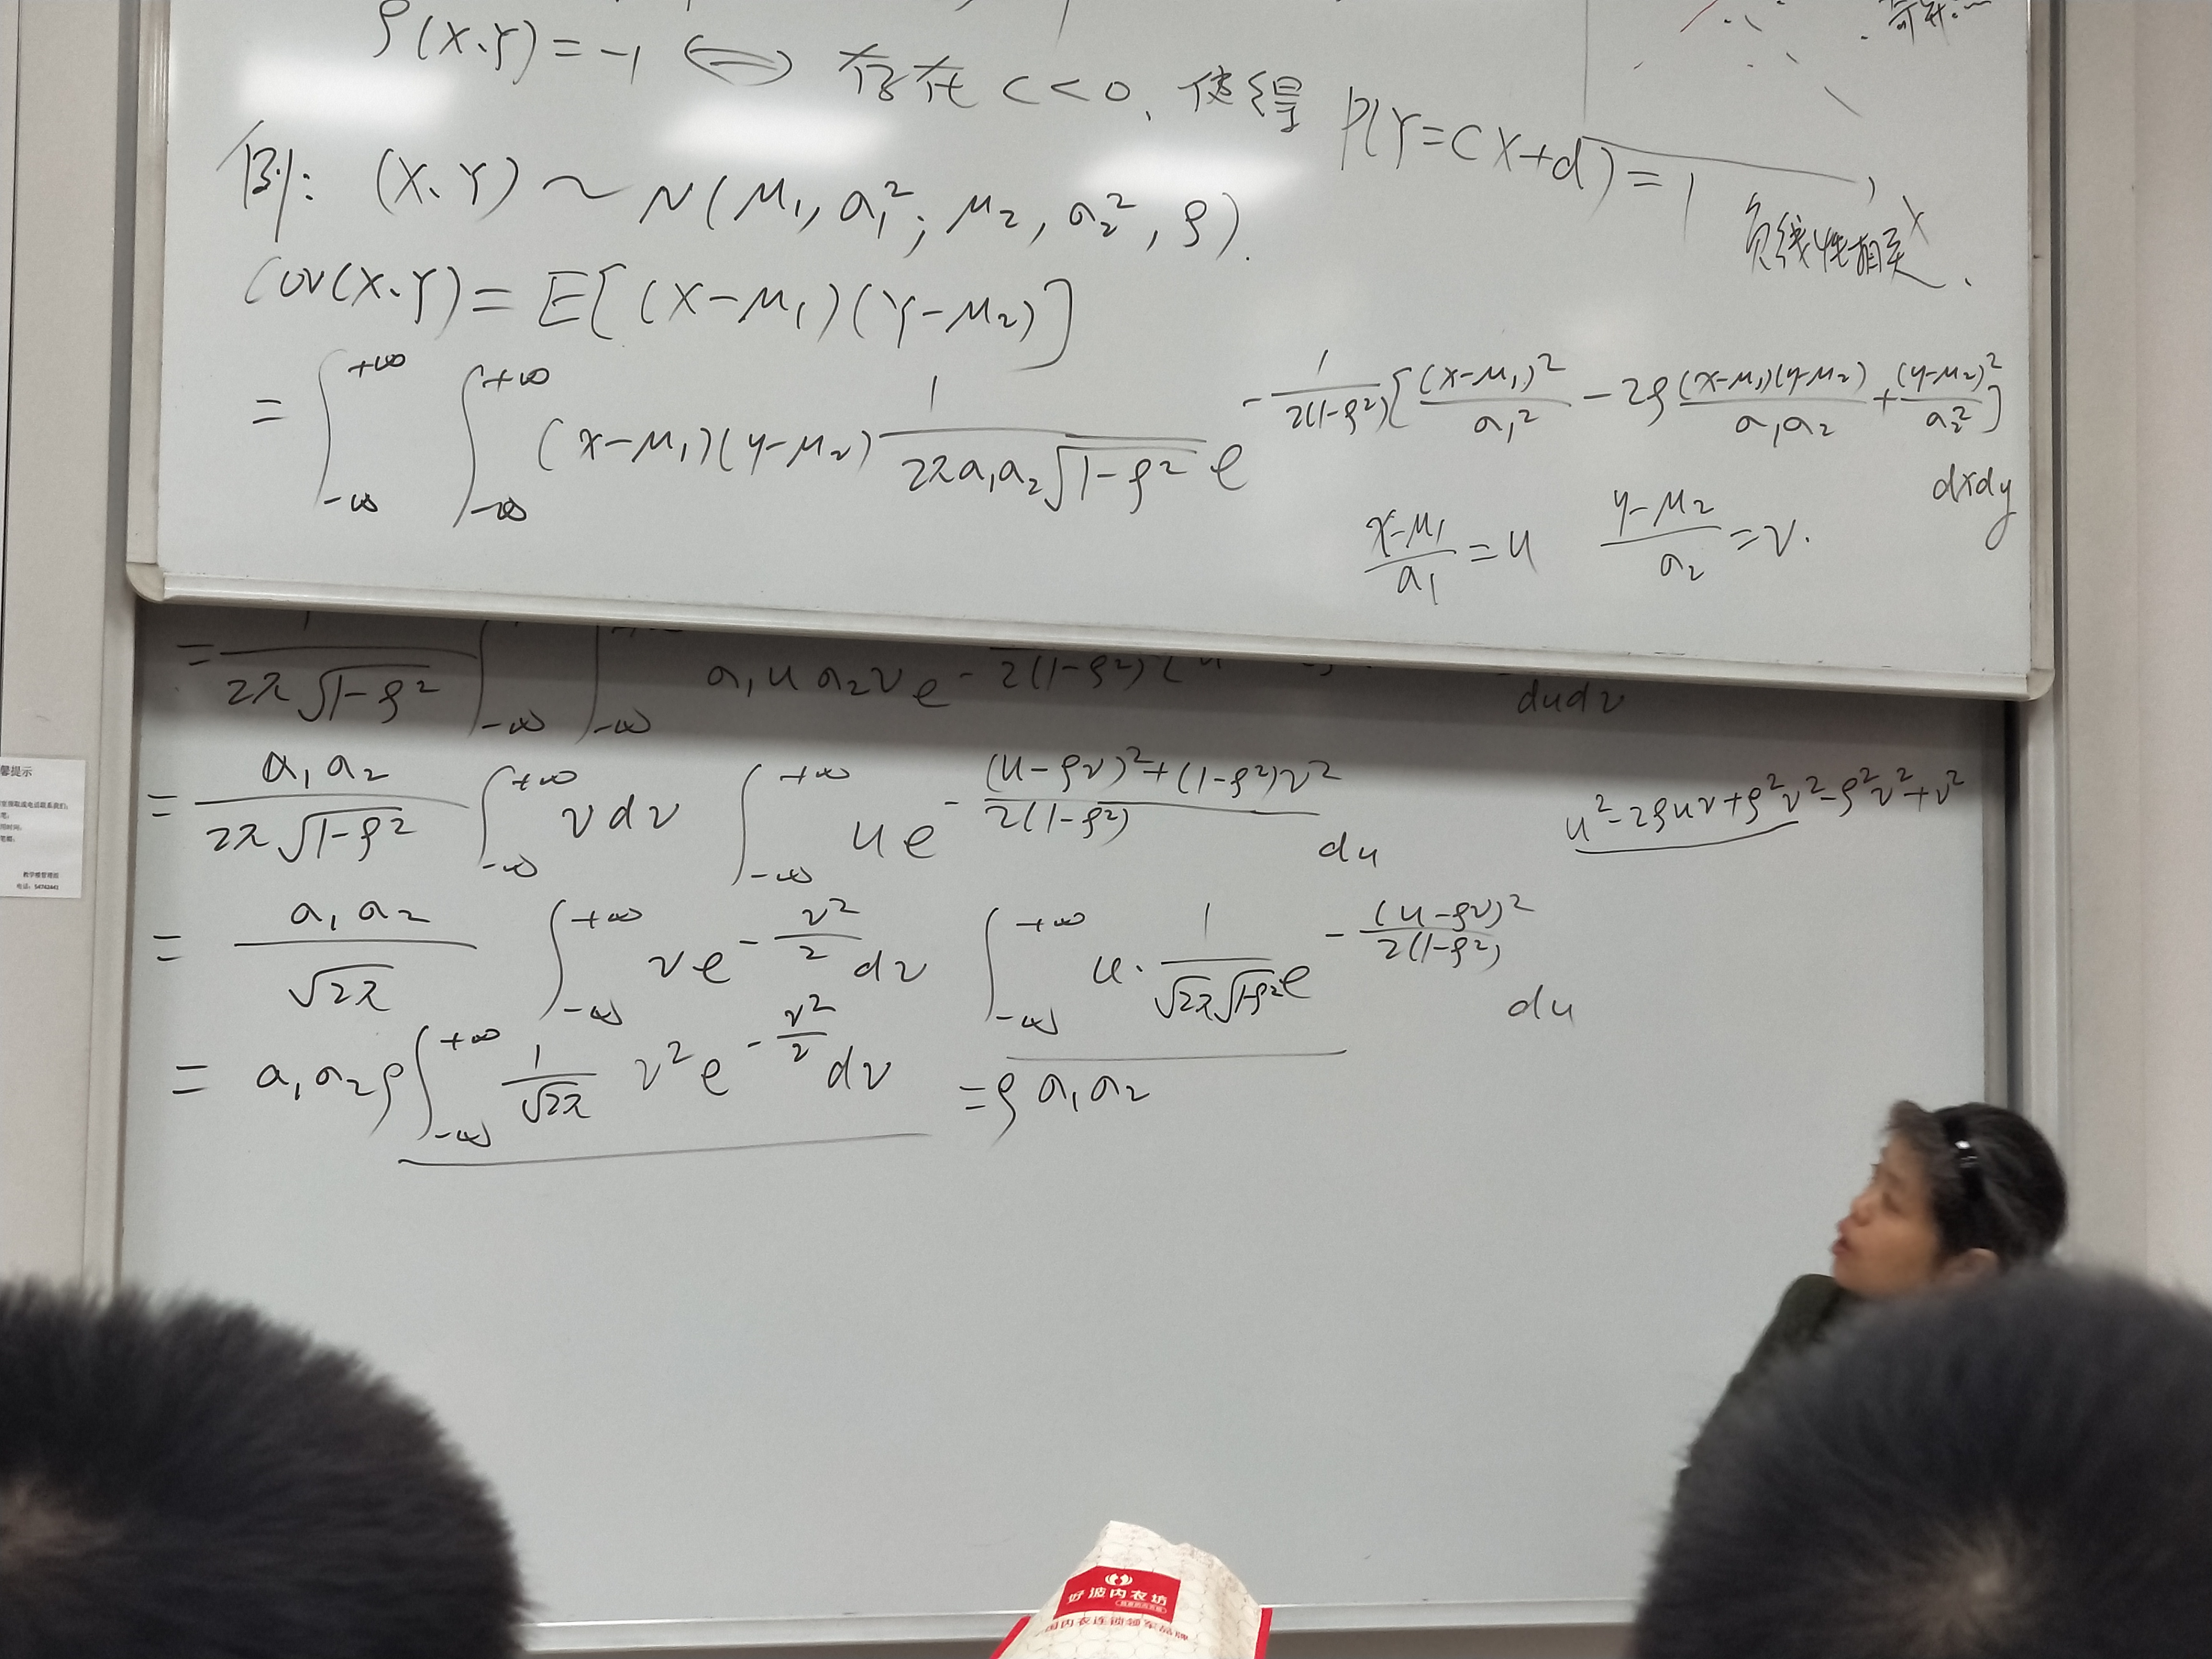 ρ(X、Y)=-1 ⟺ 存在 c<0、使得 P(Y=cX+d)=1
x
负线性相关.
例: (X、Y) ~ N(μ₁, σ₁²; μ₂, σ₂², ρ).
Cov(X、Y) = E[(X-μ₁)(Y-μ₂)]
= ∫_{-∞}^{+∞} ∫_{-∞}^{+∞} (x-μ₁)(y-μ₂) 1/(2πσ₁σ₂√(1-ρ²)) e^{-1/(2(1-ρ²)) [(x-μ₁)²/σ₁² - 2ρ (x-μ₁)(y-μ₂)/(σ₁σ₂) + (y-μ₂)²/σ₂²]} dxdy
(x-μ₁)/σ₁ = u (y-μ₂)/σ₂ = v.
= 1/(2π√(1-ρ²)) ∫_{-∞} ∫_{-∞} σ₁u σ₂v e^{- /(2(1-ρ²))} dudv
= σ₁σ₂/(2π√(1-ρ²)) ∫_{-∞}^{+∞} v dv ∫_{-∞}^{+∞} u e^{-((u-ρv)²+(1-ρ²)v²)/(2(1-ρ²))} du
u²-2ρuv+ρ²v²-ρ²v²+v²
= σ₁σ₂/√2π ∫_{-∞}^{+∞} v e^{-v²/2} dv ∫_{-∞}^{+∞} u· 1/(√2π√(1-ρ²)) e^{-(u-ρv)²/(2(1-ρ²))} du
= σ₁σ₂ρ ∫_{-∞}^{+∞} 1/√2π v² e^{-v²/2} dv = ρσ₁σ₂
馨提示
教学楼管理组
电话: 54742441
好波内衣坊
国内衣连锁领军品牌